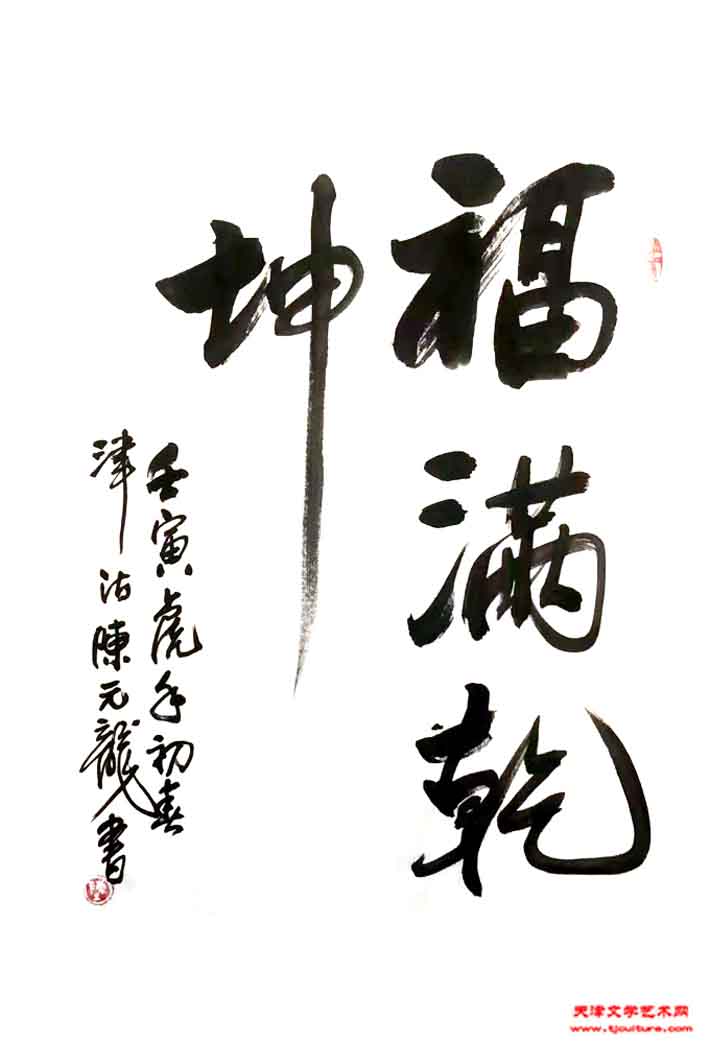 福滿乾
坤
壬寅虎年初春
津沽陳元龍書
天津文学艺术网
www.tjculture.com